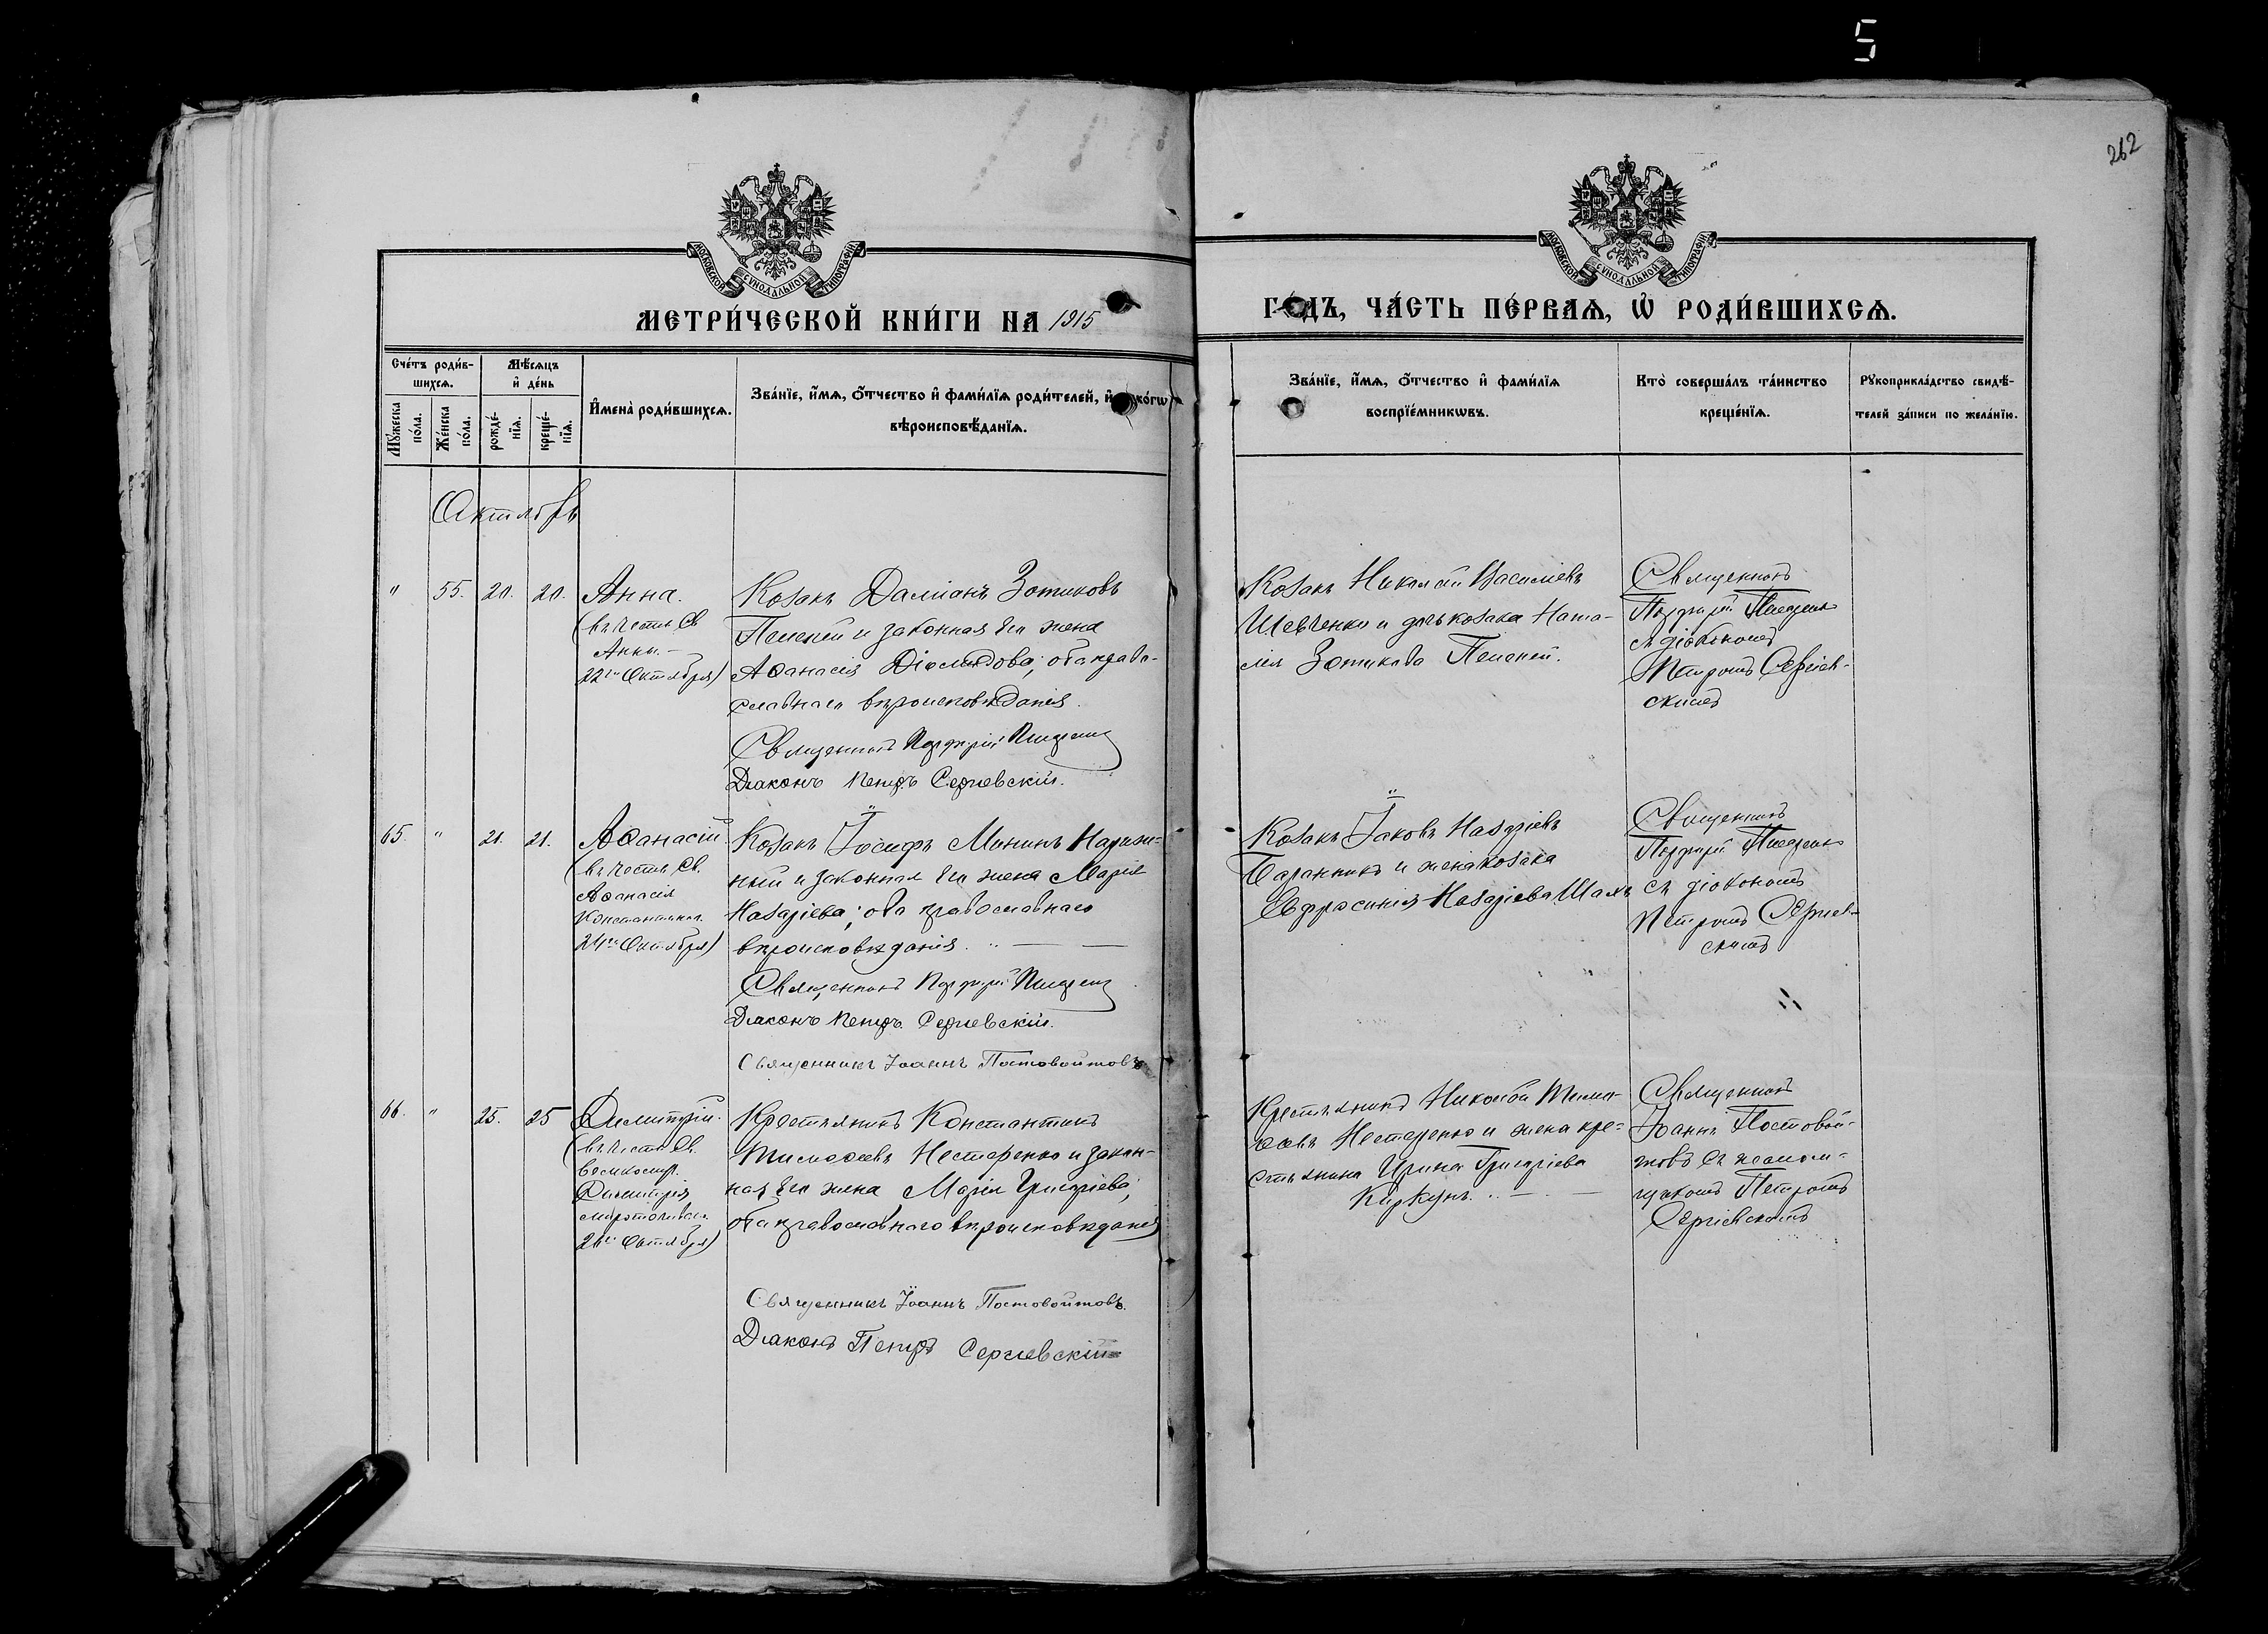 5
262
МОСКОВСКОЙ СУНОДАЛЬНОЙ ТИПОГРАФІИ
МОСКОВСКОЙ СУНОДАЛЬНОЙ ТИПОГРАФІИ
МЕТРИ́ЧЕСКОЙ КНИ́ГИ НА 1915
ГО́ДЪ, ЧА́СТЬ ПЕ́РВАѦ, Ѡ҆ РОДИ́ВШИХСѦ.
Сче́тъ роди́в-
шихсѧ.
Мꙋ́жеска
по́ла.
Же́нска
по́ла.
Мѣ́сѧцъ
и҆ де́нь
рожде́-
нїѧ.
креще́-
нїѧ.
И҆мена̀ роди́вшихсѧ.
Зва́нїе, и҆́мѧ, ѻ҆́тчество и҆ фами́лїѧ роди́телей, и҆ ко́гѡ
вѣроисповѣ́данїѧ.
Зва́нїе, и҆́мѧ, ѻ҆́тчество и҆ фами́лїѧ
воспрїе́мникѡвъ.
Кто̀ соверша́лъ та́инство
креще́нїѧ.
Рꙋкоприкла́дство свидѣ́-
телей за́писи по жела́нїю.
Октябрь
" 55. 20. 20. Анна.
(въ честь Св.
Анны.—
22го Октября)
Козакъ Даміанъ Зотиковъ
и законная его жена
Аѳанасія Діомидова; оба право-
славнаго вѣроисповѣданія.
Священникъ Порфирій
Діаконъ Петръ Сергіевскій.
Козакъ Николай Василіевъ
Шевченко и дочь козака Ната-
лія Зотикова
Священникъ
Порфирій
съ діакономъ
Петромъ Сергіев-
скимъ
65. " 21. 21. Аѳанасій
(въ честь Св.
Аѳанасія
24го Октября)
Козакъ Іосифъ Мининъ
ный и законная его жена Марія
Назаріева; оба православнаго
вѣроисповѣданія. " — —
Священникъ Порфирій
Діаконъ Петръ Сергіевскій.
Священникъ Іоаннъ Постовойтовъ
Козакъ Іаковъ Назаріевъ
Баранникъ и жена козака
Евфросинія Назаріева
Священникъ
Порфирій
съ діакономъ
Петромъ Сергіев-
скимъ
66. " 25. 25 Димитрій.
(въ честь Св.
великомуч.
Димитрія
26го Октября)
Крестьянинъ Константинъ
Тимоѳеевъ Нестеренко и закон-
ная его жена Марія Григоріева;
оба православнаго вѣроисповѣданія
Священникъ Іоаннъ Постовойтовъ.
Діаконъ Петръ Сергіевскій
Крестьянинъ Николай Тимо-
ѳеевъ Нестеренко и жена кре-
стьянина Ирина Григоріева
Священникъ
Іоаннъ Постовой-
товъ съ псалом-
щикомъ Петромъ
Сергіевскимъ